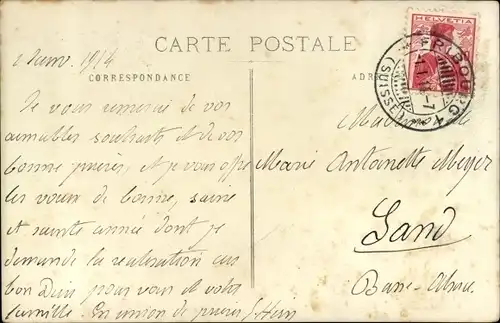 CARTE POSTALE
CORRESPONDANCE
2 Janv. 1914
Je vous remercie de vos
aimables souhaits et de vos
bonne prières, et je vous offre
les voeux de bonne, saine
et sainte année dont je
demande la réalisation au
bon Dieu pour vous et votre
famille. En union de prières
HELVETIA
FRIBOURG
(SUISSE)
Marie Antoinette Meyer
Sand
Basse-Alsace